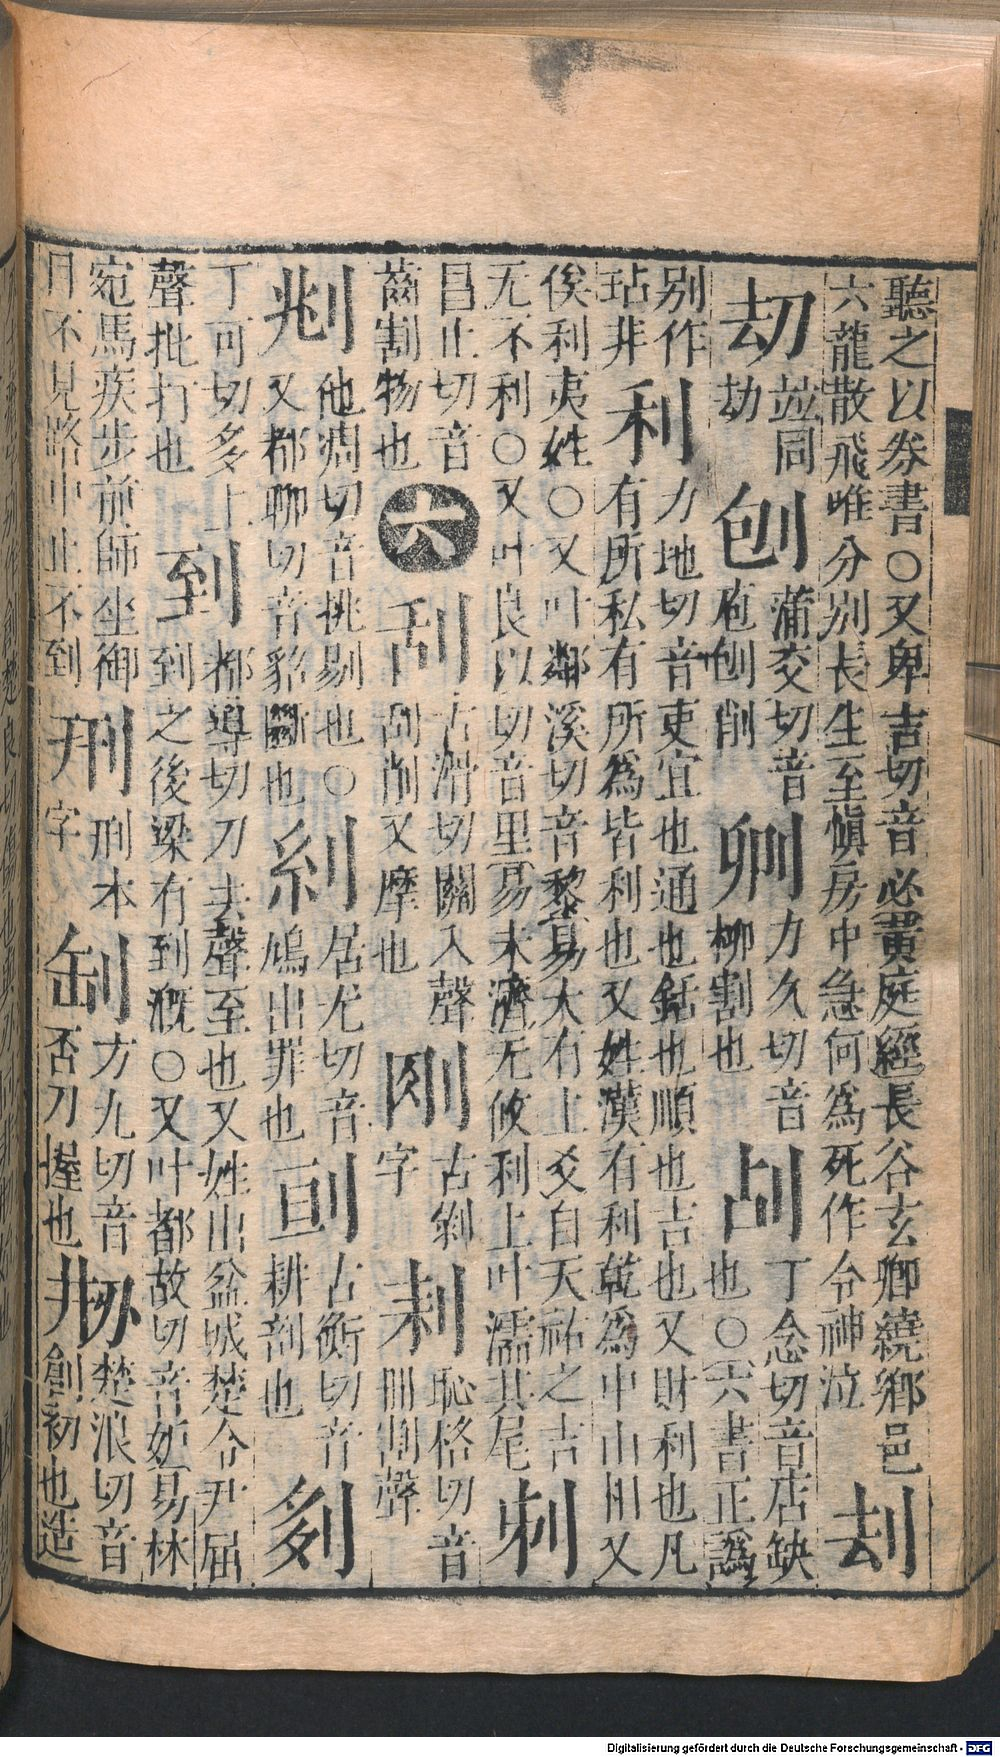 聽之以券書○又卑吉切音必黃庭經長谷玄鄉繞鄉邑
六龍散飛難分别長生至愼房中急何為死作令神泣刦
刧並同劫刨蒲交切音庖刨削𠛎力久切音柳割也㓠丁念切音店缺也○六書正譌
别作玷非利力地切音吏宜也通也銛也順也吉也又財利也凡有所私有所為皆利也又姓漢有利乾為中山相又
俟利夷姓○又叶鄰溪切音黎易大有上爻自天祐之吉
无不利○又叶良以切音里易未濟无攸利上叶濡其尾刺
昌止切音齒割物也六刮古滑切關入聲刮削又摩也刚古剛字㓤恥格切音
㓮他凋切音挑剔也○又都聊切音貂斷也糺居尤切音鳩出罪也㔓古衡切音耕剖也刴
丁可切多上聲批打也到都導切刀去聲至也又姓出盆城楚令尹屈到之後梁有到溉○又叶都故切音妬易林
宛馬疾步前師坐御日不見路中止不到㓝刑本字𠛩方九切音否刀握也刱楚浪切音創初也造